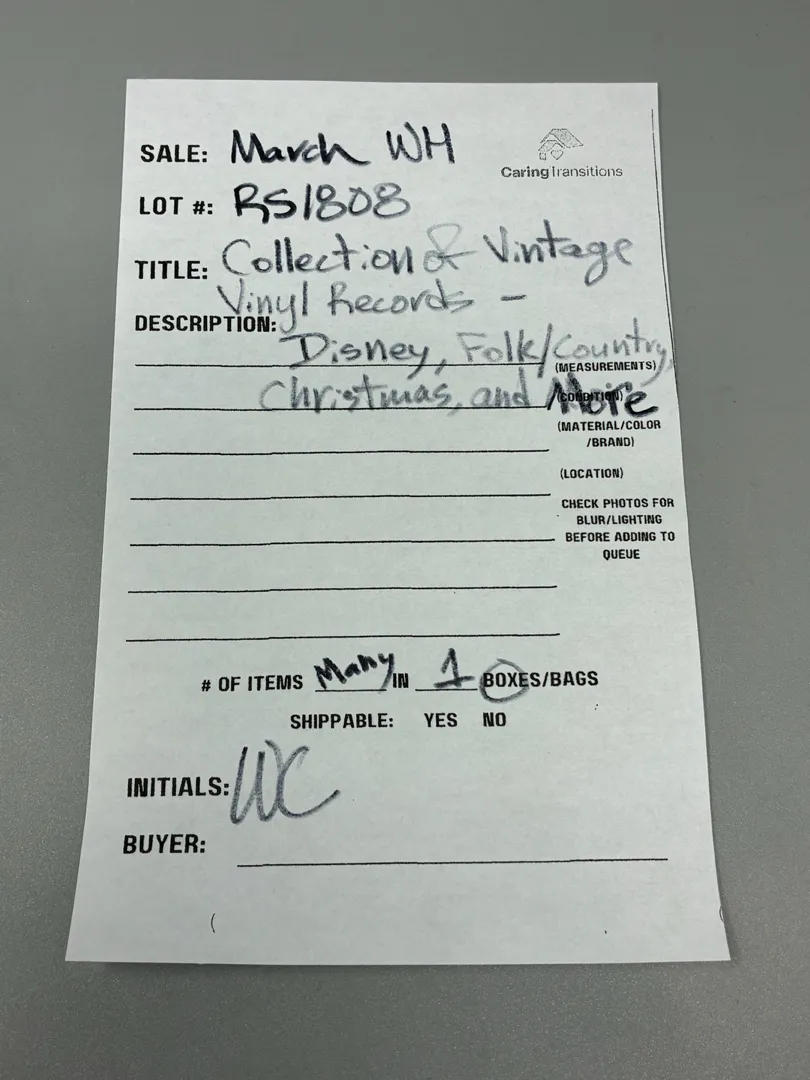 SALE: March WH
CaringTransitions
LOT #: RS1808
TITLE: Collection of Vintage
Vinyl Records -
DESCRIPTION:
Disney, Folk/Country,
(MEASUREMENTS)
Christmas, and More
(CONDITION)
(MATERIAL/COLOR
/BRAND)
(LOCATION)
CHECK PHOTOS FOR
BLUR/LIGHTING
BEFORE ADDING TO
QUEUE
# OF ITEMS Many IN 1 BOXES/BAGS
SHIPPABLE: YES NO
INITIALS: WC
BUYER: